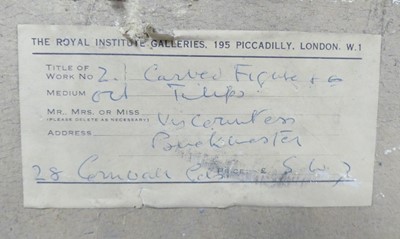 THE ROYAL INSTITUTE GALLERIES, 195 PICCADILLY, LONDON. W.1
TITLE OF
WORK NO 2.1 Carved Figure &
MEDIUM oil Tulips
MR. MRS. OR MISS Viscountess
(PLEASE DELETE AS NECESSARY)
ADDRESS Buckmaster
PRICE £
28 Cornwall Gdns S.W.7